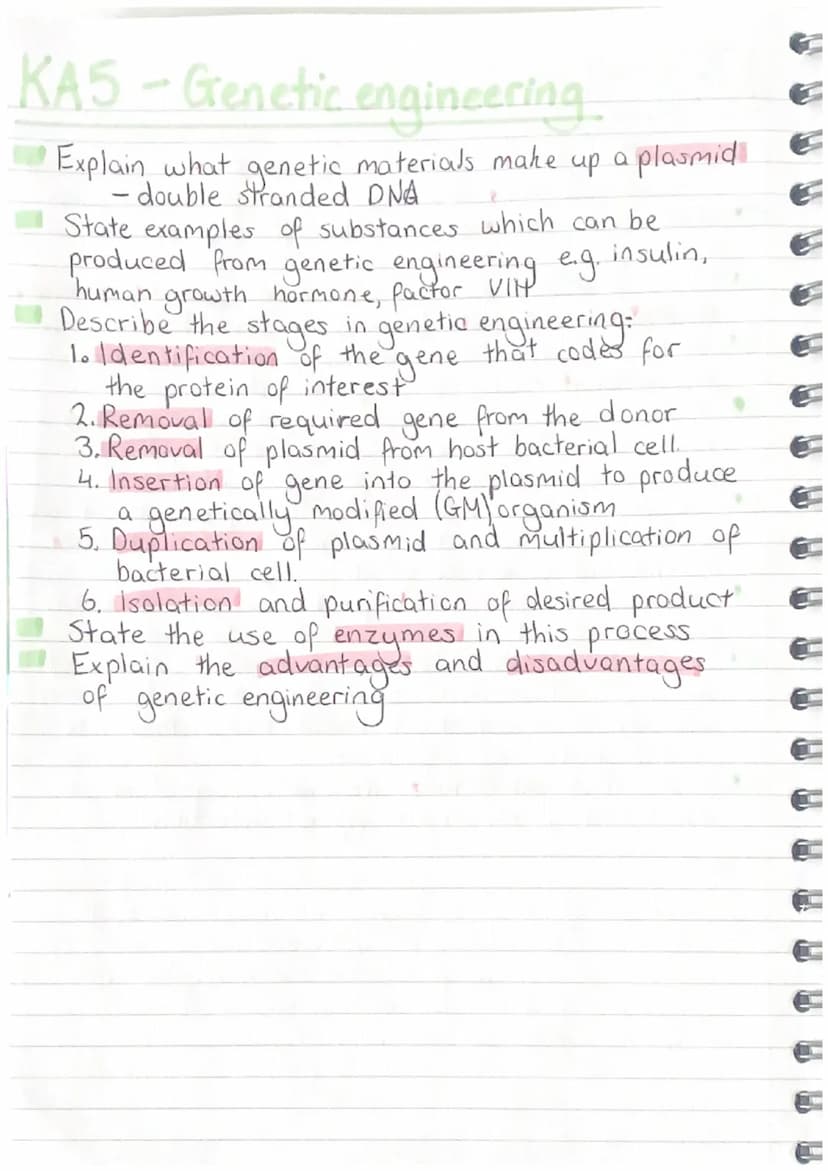 KA5 - Genetic engineering
Explain what genetic materials make up a plasmid
- double stranded DNA
State examples of substances which can be
produced from genetic engineering e.g. insulin,
human growth hormone, factor VIII
Describe the stages in genetic engineering:
1. Identification of the gene that codes for
the protein of interest
2. Removal of required gene from the donor
3. Removal of plasmid from host bacterial cell.
4. Insertion of gene into the plasmid to produce
a genetically modified (GM) organism
5. Duplication of plasmid and multiplication of
bacterial cell.
6. Isolation and purification of desired product
State the use of enzymes in this process
Explain the advantages and disadvantages
of genetic engineering